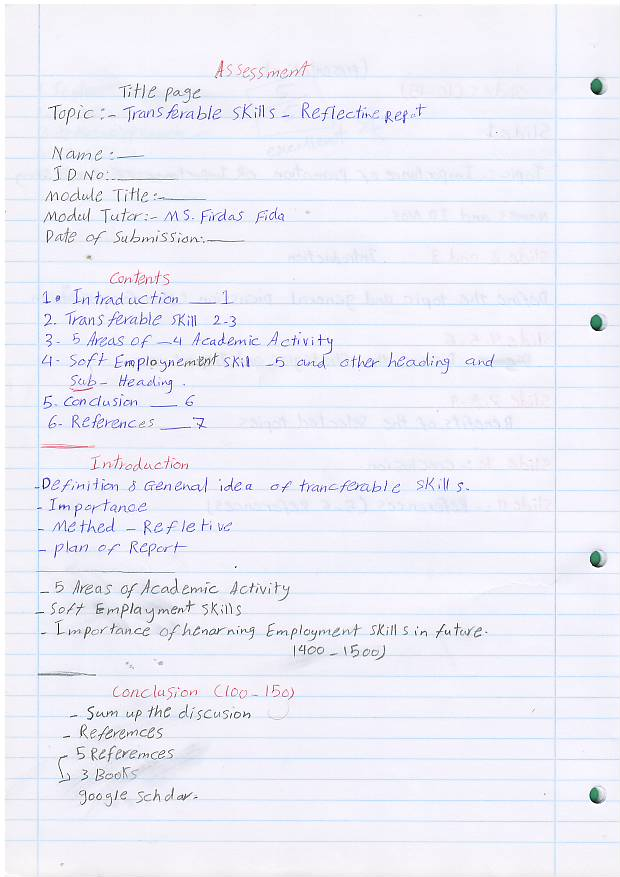 Assessment
Title page
Topic :- Transferable Skills - Reflective Repot
Name :—
ID No:
Module Title:-
Modul Tutor:- MS. Firdas Fida
Date of Submission:
Contents
1. Intraduction — 1
2. Transferable Skill 2-3
3- 5 Areas of -4 Academic Activity
4- Soft Employnement Skil -5 and other heading and
Sub - Heading.
5. Conclusion — 6
6- References — 7
Introduction
-Definition & Genenal idea of trancferable Skills.
- Importance
- Methed - Refletive
- plan of Report
- 5 Areas of Academic Activity
- Soft Emplayment Skills
- Importance of henarning Employment Skills in future.
(400 - 1500)
Conclasion (100-150)
- Sum up the discusion
- Referemces
- 5 Referemces
3 Books
google Schdar.